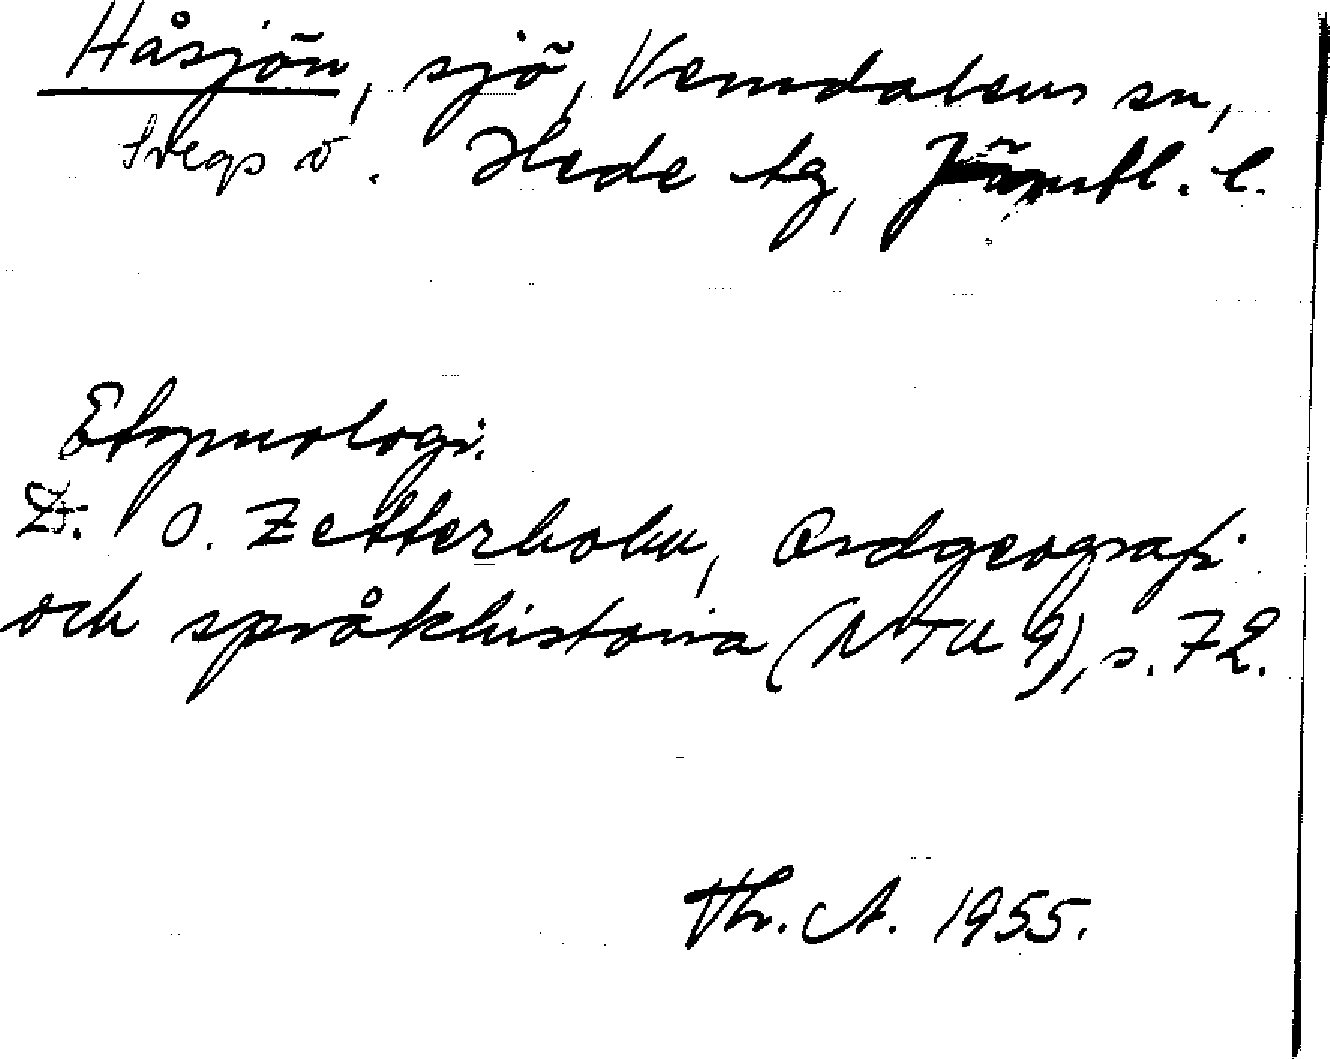 Håsjön, sjö, Vemdalens sn,
Svegs . Hede tg, Jämtl. l.
Etymologi.
D. O. Zetterholm, Ordgeografi
och språkhistoria (NTU 9), s. 72.
Th. A. 1955.